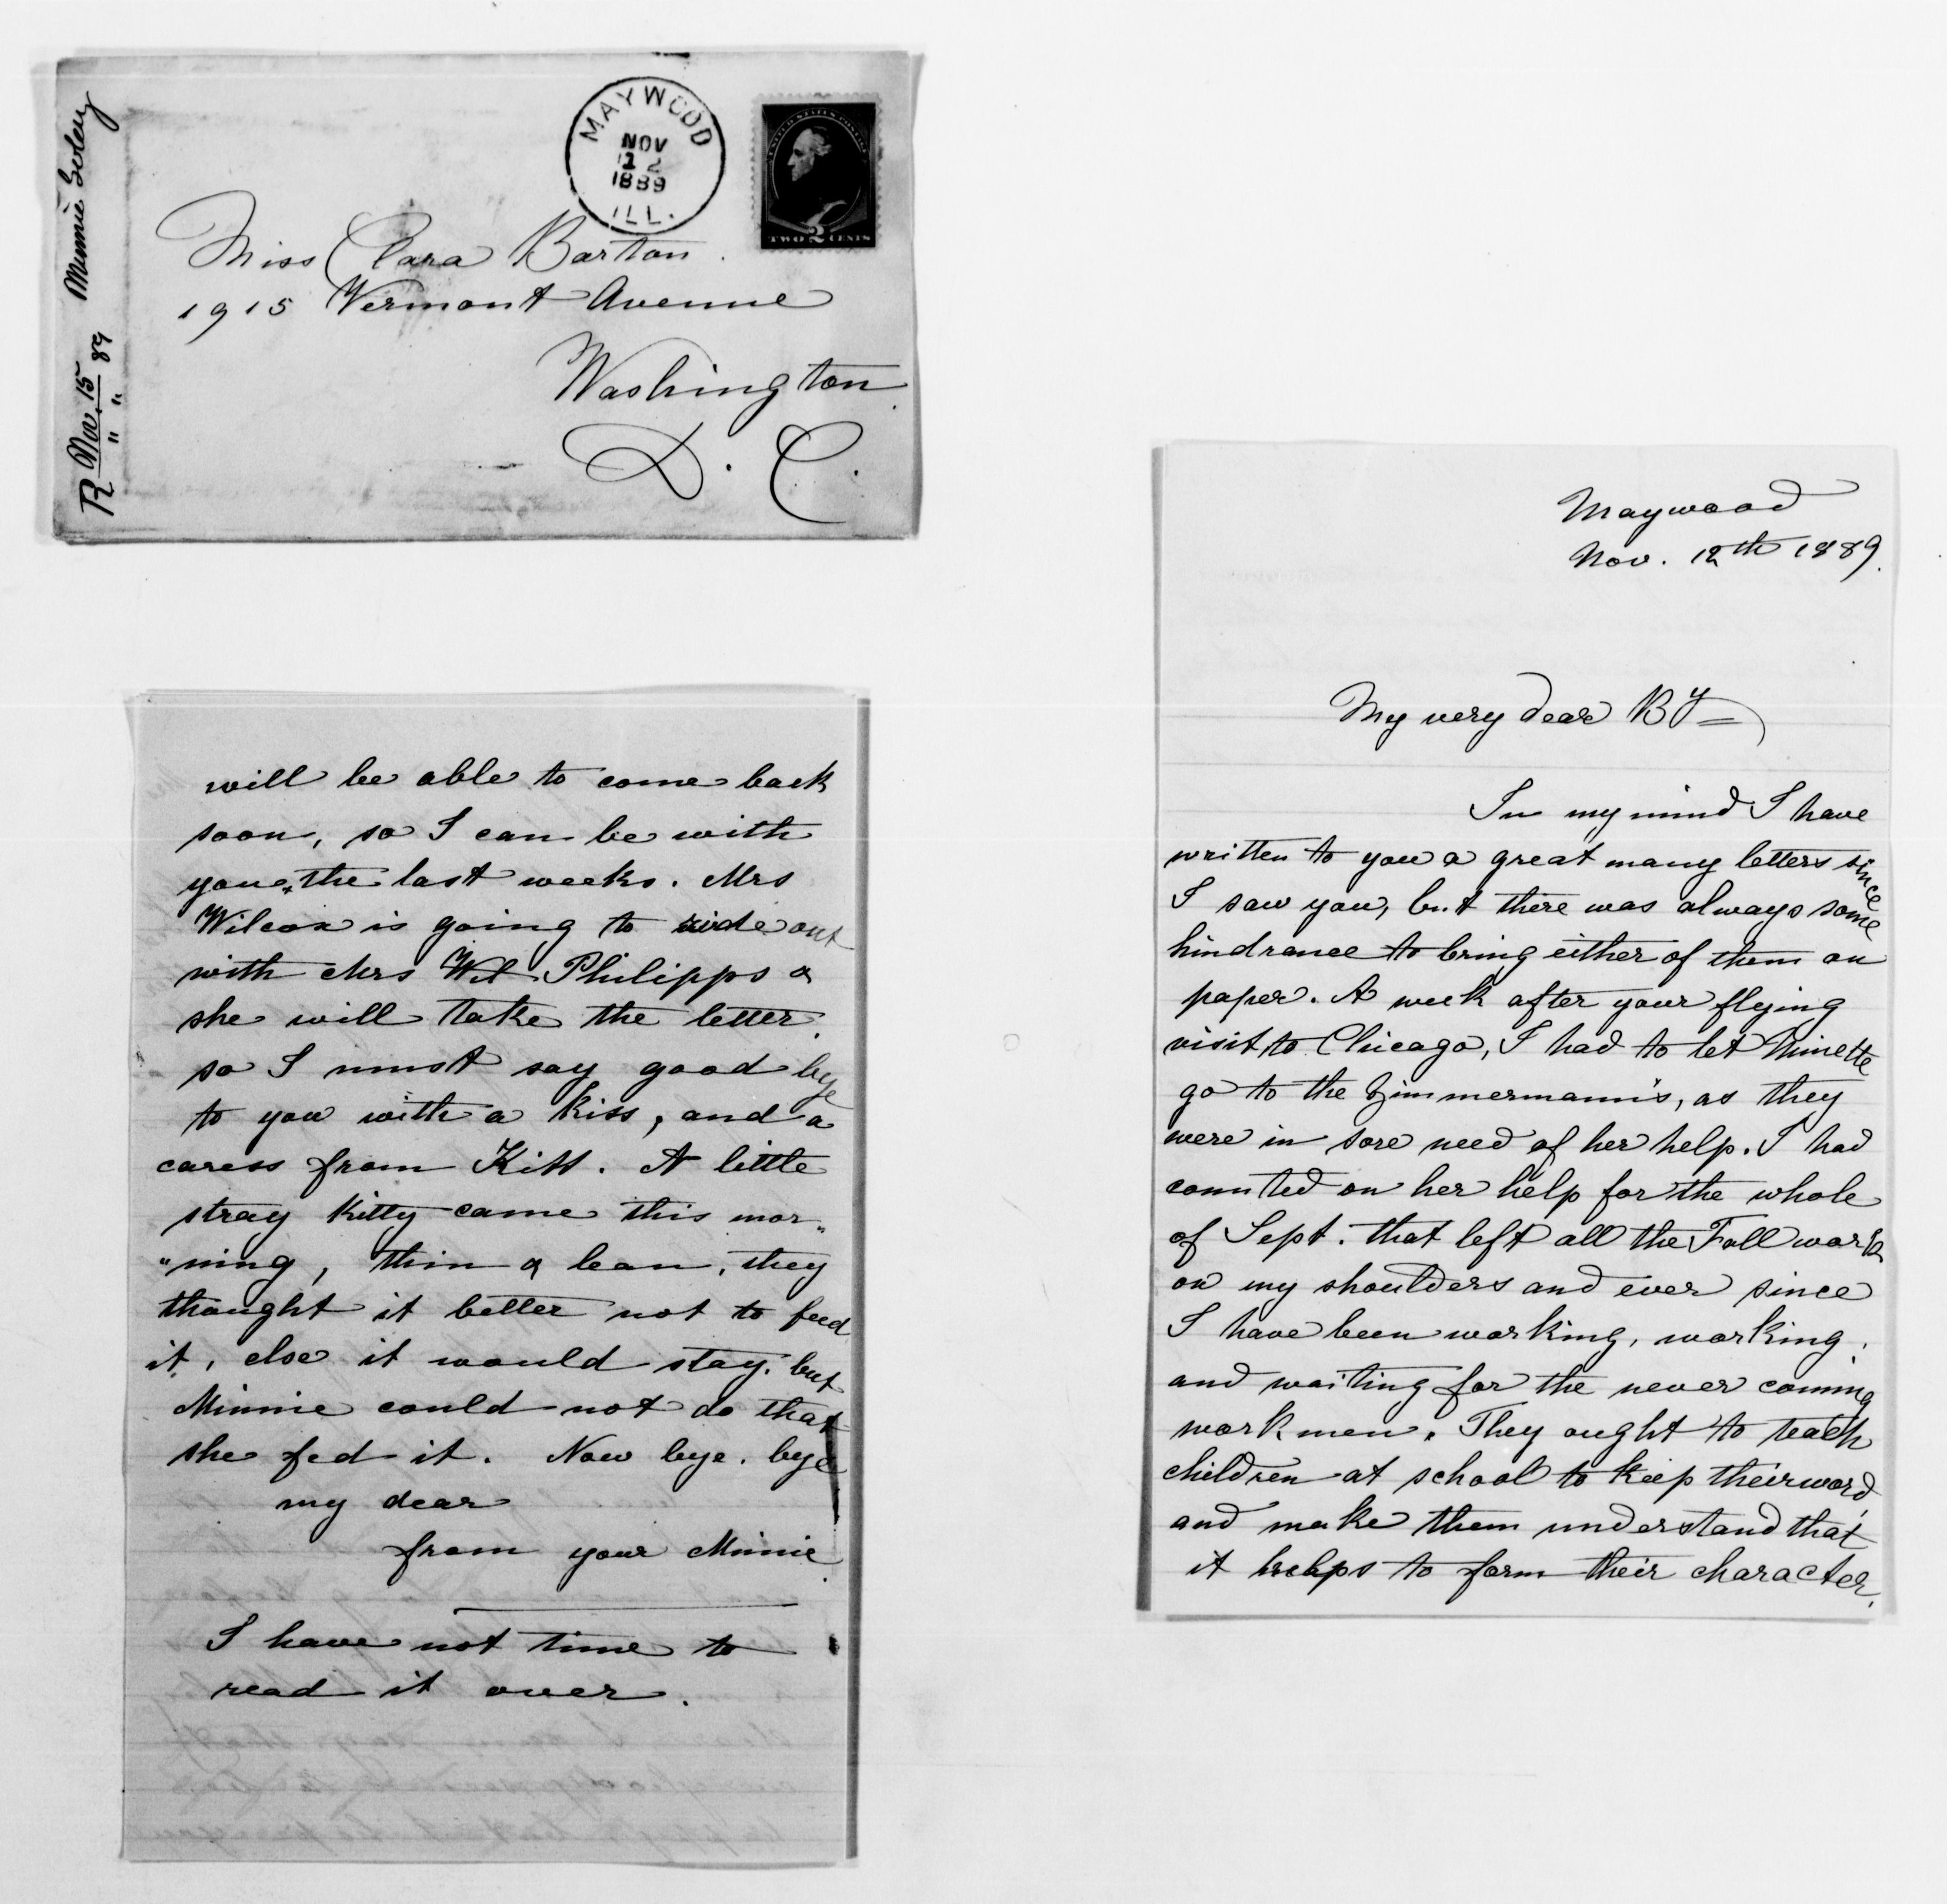 Minnie Golay
R Nov. 15
" " 89
MAYWOOD
NOV
12
1889
ILL.
UNITED STATES POSTAGE
TWO 2 CENTS
Miss Clara Barton.
1915 Vermont Avenue
Washington
D. C.
Maywood
Nov. 12th 1889.
My very dear By
In my mind I have
written to you a great many letters since
I saw you, but there was always some
hindrance to bring either of them on
paper. A week after your flying
visit to Chicago, I had to let Minette
go to the Zimmermann's, as they
were in sore need of her help. I had
counted on her help for the whole
of Sept. that left all the Fall work
on my shoulders and ever since
I have been working, working,
and waiting for the never coming
workmen. They ought to teach
children at school to keep their word,
and make them understand that
it helps to form their character.
will be able to come back
soon, so I can be with
you the last weeks. Mrs
Wilcox is going to ride out
with Mrs Philipps &
she will take the letter.
so I must say good bye
to you with a kiss, and a
caress from Kitt. A little
stray Kitty came this mor„
„ning, thin & lean, they
thought it better not to feed
it, else it would stay. but
Minnie could not do that
she fed it. Now bye. bye
my dear
from your Minnie.
I have not time to
read it over.